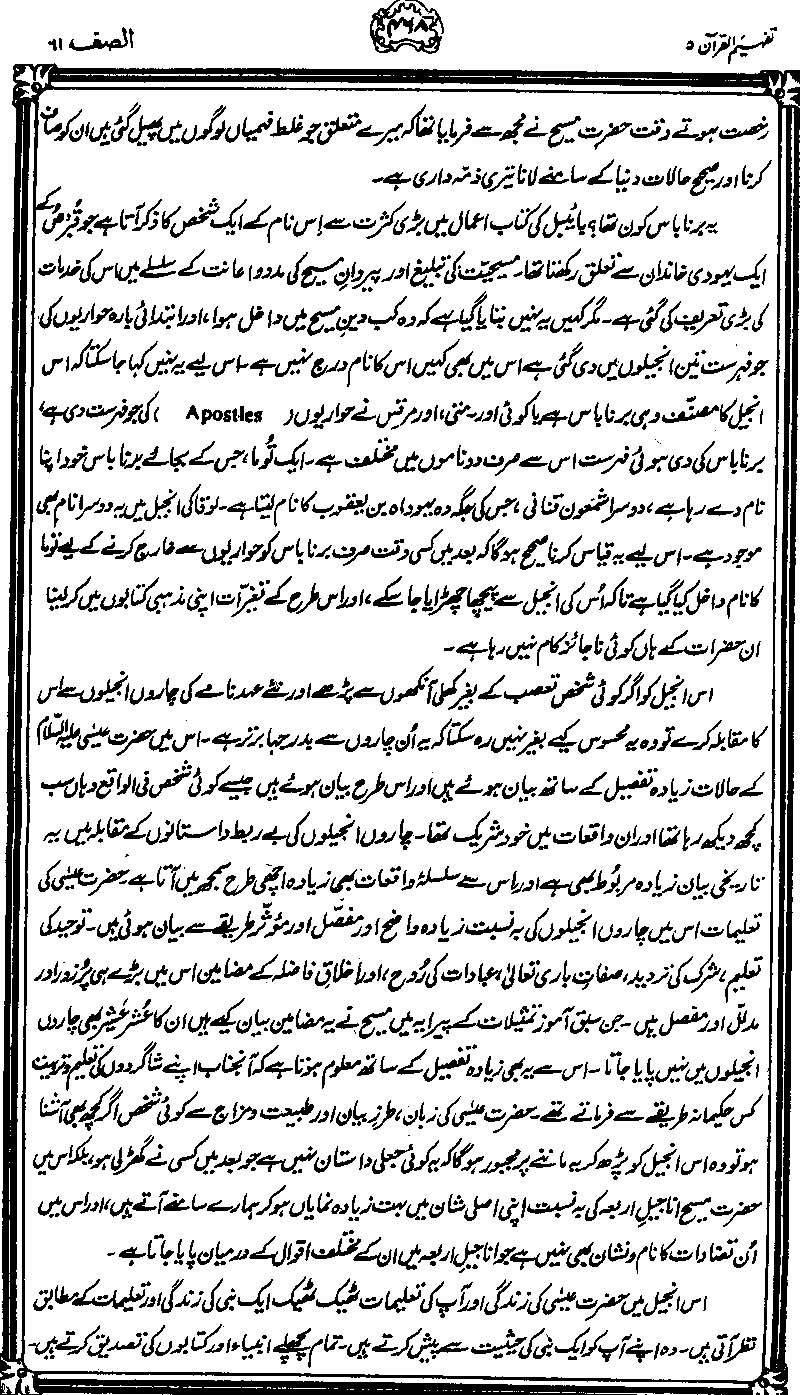 تفہیم القرآن ۵
۴۶۸
الصف ۶۱
رخصت ہوتے وقت حضرت مسیح نے مجھ سے فرمایا تھا کہ میرے متعلق جو غلط فہمیاں لوگوں میں پھیل گئی ہیں ان کو صاف
کرنا اور صحیح حالات دنیا کے سامنے لانا تیری ذمہ داری ہے۔
یہ برناباس کون تھا؟ بائیبل کی کتاب اعمال میں بڑی کثرت سے اِس نام کے ایک شخص کا ذکر آتا ہے جو قُبرُص کے
ایک یہودی خاندان سے تعلق رکھتا تھا۔ مسیحیّت کی تبلیغ اور پیروانِ مسیح کی مدد و اعانت کے سلسلے میں اس کی خدمات
کی بڑی تعریف کی گئی ہے۔ مگر کہیں یہ نہیں بتایا گیا ہے کہ وہ کب دینِ مسیح میں داخل ہوا، اور ابتدائی بارہ حواریوں کی
جو فہرست تین انجیلوں میں دی گئی ہے اس میں بھی کہیں اس کا نام درج نہیں ہے۔ اس لیے یہ نہیں کہا جا سکتا کہ اس
انجیل کا مصنّف وہی برناباس ہے یا کوئی اور۔ متی، اور مرقس نے حواریوں ( Apostles ) کی جو فہرست دی ہے،
برناباس کی دی ہوئی فہرست اس سے صرف دو ناموں میں مختلف ہے۔ ایک تُوما، جس کے بجائے برناباس خود اپنا
نام دے رہا ہے، دوسرا شمعون قنانی، جس کی جگہ وہ یہوداہ بن یعقوب کا نام لیتا ہے۔ لوقا کی انجیل میں یہ دوسرا نام بھی
موجود ہے۔ اس لیے یہ قیاس کرنا صحیح ہوگا کہ بعد میں کسی وقت صرف برناباس کو حواریوں سے خارج کرنے کے لیے توما
کا نام داخل کیا گیا ہے تاکہ اُس کی انجیل سے پیچھا چھڑایا جا سکے، اور اس طرح کے تغیّرات اپنی مذہبی کتابوں میں کر لینا
ان حضرات کے ہاں کوئی ناجائز کام نہیں رہا ہے۔
اس انجیل کو اگر کوئی شخص تعصب کے بغیر کھلی آنکھوں سے پڑھے اور نئے عہد نامے کی چاروں انجیلوں سے اس
کا مقابلہ کرے تو وہ یہ محسوس کیے بغیر نہیں رہ سکتا کہ یہ اُن چاروں سے بدرجہا برتر ہے۔ اس میں حضرت عیسٰی علیہ السّلام
کے حالات زیادہ تفصیل کے ساتھ بیان ہوئے ہیں اور اس طرح بیان ہوئے ہیں جیسے کوئی شخص فی الواقع وہاں سب
کچھ دیکھ رہا تھا اور ان واقعات میں خود شریک تھا۔ چاروں انجیلوں کی بے ربط داستانوں کے مقابلہ میں یہ
تاریخی بیان زیادہ مربُوط بھی ہے اور اس سے سلسلۂ واقعات بھی زیادہ اچھی طرح سمجھ میں آتا ہے۔ حضرت عیسٰی کی
تعلیمات اس میں چاروں انجیلوں کی بہ نسبت زیادہ واضح اور مفصّل اور مؤثّر طریقے سے بیان ہوئی ہیں۔ توحید کی
تعلیم، شرک کی تردید، صفاتِ باری تعالیٰ، عبادات کی رُوح، اور اخلاقِ فاضلہ کے مضامین اس میں بڑے ہی پُر زور اور
مدلّل اور مفصل ہیں۔ جن سبق آموز تمثیلات کے پیرایہ میں مسیح نے یہ مضامین بیان کیے ہیں ان کا عُشرِ عَشِیر بھی چاروں
انجیلوں میں نہیں پایا جاتا۔ اس سے یہ بھی زیادہ تفصیل کے ساتھ معلوم ہوتا ہے کہ آنجناب اپنے شاگردوں کی تعلیم و تربیت
کس حکیمانہ طریقے سے فرماتے تھے۔ حضرت عیسٰی کی زبان، طرزِ بیان اور طبیعت و مزاج سے کوئی شخص اگر کچھ بھی آشنا
ہو تو وہ اس انجیل کو پڑھ کر یہ ماننے پر مجبور ہوگا کہ یہ کوئی جعلی داستان نہیں ہے جو بعد میں کسی نے گھڑ لی ہو، بلکہ اس میں
حضرت مسیح اناجیلِ اربعہ کی بہ نسبت اپنی اصلی شان میں بہت زیادہ نمایاں ہو کر ہمارے سامنے آتے ہیں، اور اس میں
اُن تضادات کا نام و نشان بھی نہیں ہے جو اناجیلِ اربعہ میں ان کے مختلف اقوال کے درمیان پایا جاتا ہے۔
اس انجیل میں حضرت عیسٰی کی زندگی اور آپ کی تعلیمات ٹھیک ٹھیک ایک نبی کی زندگی اور تعلیمات کے مطابق
نظر آتی ہیں۔ وہ اپنے آپ کو ایک نبی کی حیثیت سے پیش کرتے ہیں۔ تمام پچھلے انبیاء اور کتابوں کی تصدیق کرتے ہیں۔